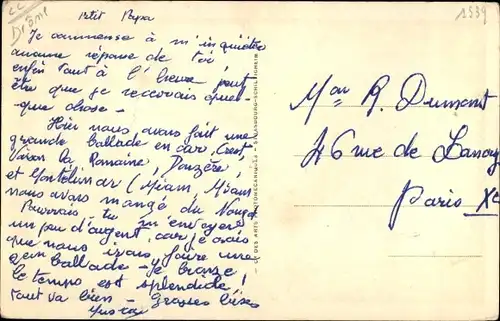 Drôme
1539
petit Papa
Je commence à m'inquiéter
aucune réponse de toi
enfin tant à l'heure peut
être que je recevrais quel-
-que chose -
Hier nous avons fait une
grande ballade en car, Crest,
Vaison la Romaine, Donzère,
et Montelimar (Miam, Miam
nous avons mangé du Nougat
Pourrais tu m'envoyer
un peu d'argent, car je crois
que nous irons faire une
ballade - Je bronze
le temps est splendide!
tout va bien - Grosses bises
Mr R. Dumont
46 rue de Lanoy
Paris Xe